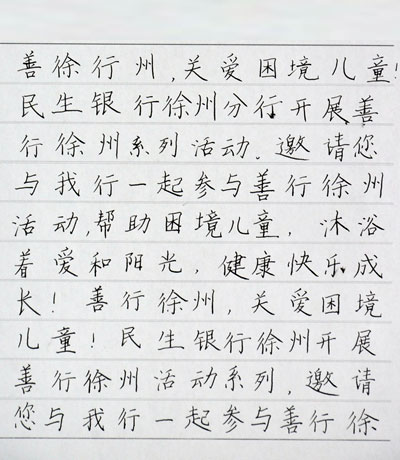 善徐行州,关爱困境儿童!
民生银行徐州分行开展善
行徐州系列活动.邀请您
与我行一起参与善行徐州
活动,帮助困境儿童,沐浴
着爱和阳光,健康快乐成
长!善行徐州,关爱困境
儿童!民生银行徐州开展
善行徐州活动系列,邀请
您与我行一起参与善行徐